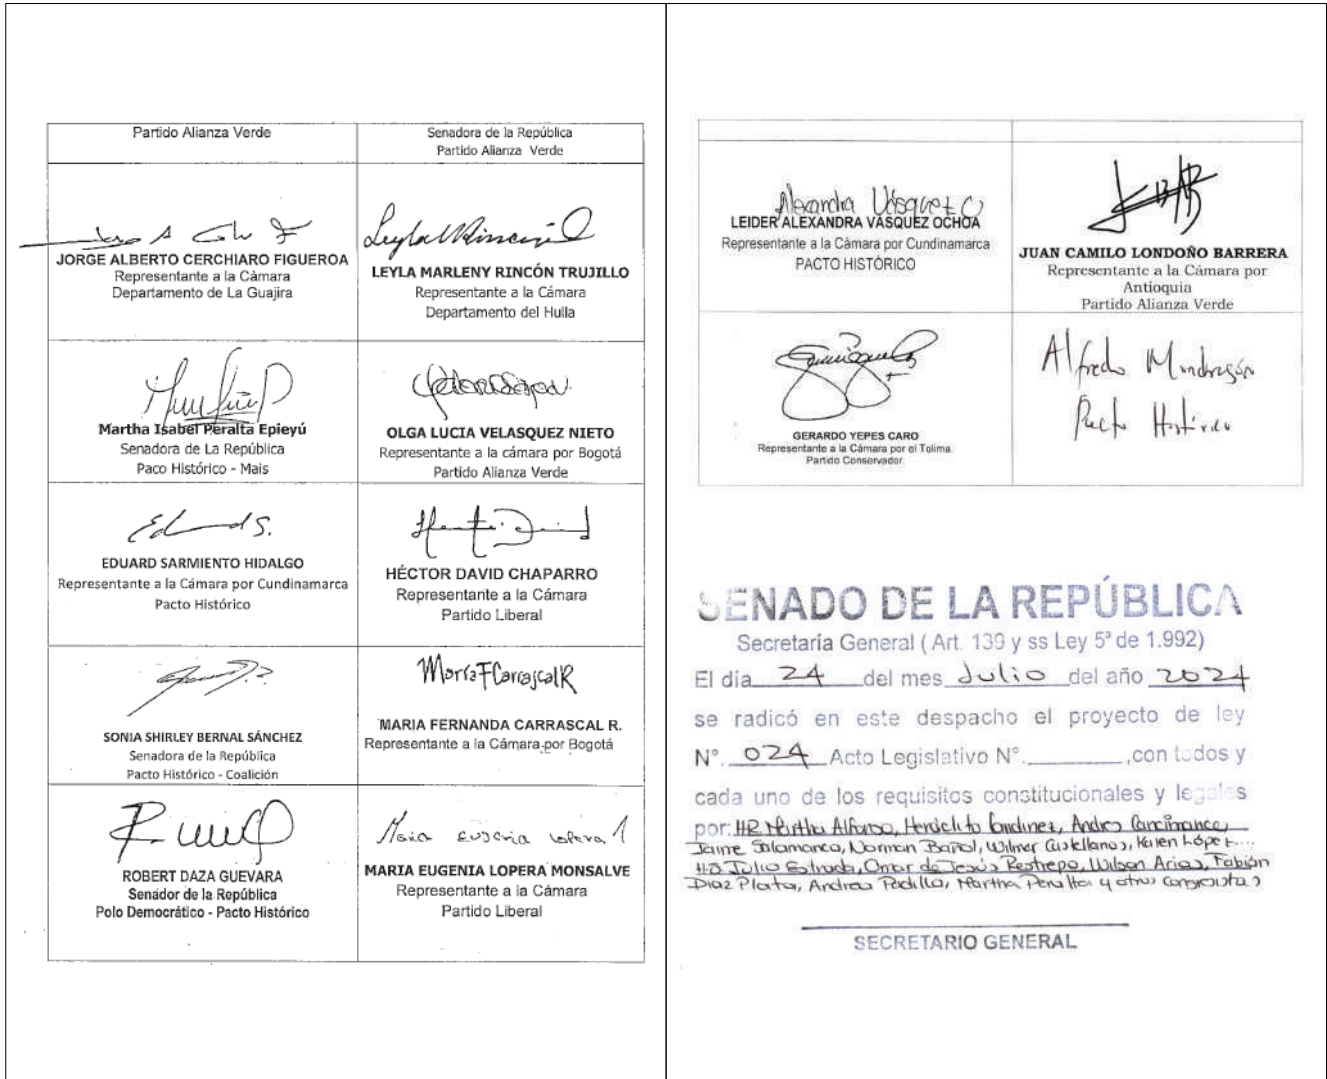 Partido Alianza Verde
Senadora de la República
Partido Alianza Verde
JORGE ALBERTO CERCHIARO FIGUEROA
Representante a la Cámara
Departamento de La Guajira
LEYLA MARLENY RINCÓN TRUJILLO
Representante a la Cámara
Departamento del Huila
Martha Isabel Peralta Epieyú
Senadora de La República
Paco Histórico - Mais
OLGA LUCIA VELASQUEZ NIETO
Representante a la cámara por Bogotá
Partido Alianza Verde
Eduard S.
EDUARD SARMIENTO HIDALGO
Representante a la Cámara por Cundinamarca
Pacto Histórico
HÉCTOR DAVID CHAPARRO
Representante a la Cámara
Partido Liberal
SONIA SHIRLEY BERNAL SÁNCHEZ
Senadora de la República
Pacto Histórico - Coalición
María F Carrascal R
MARIA FERNANDA CARRASCAL R.
Representante a la Cámara por Bogotá
ROBERT DAZA GUEVARA
Senador de la República
Polo Democrático - Pacto Histórico
Maria Eugenia Lopera
MARIA EUGENIA LOPERA MONSALVE
Representante a la Cámara
Partido Liberal
Alexandra Vásquez O
LEIDER ALEXANDRA VÁSQUEZ OCHOA
Representante a la Cámara por Cundinamarca
PACTO HISTÓRICO
JUAN CAMILO LONDOÑO BARRERA
Representante a la Cámara por
Antioquia
Partido Alianza Verde
GERARDO YEPES CARO
Representante a la Cámara por el Tolima.
Partido Conservador.
Alfredo Mondragón
Pacto Histórico
SENADO DE LA REPÚBLICA
Secretaría General ( Art. 139 y ss Ley 5ª de 1.992)
El día 24 del mes Julio del año 2024
se radicó en este despacho el proyecto de ley
N°. 024 Acto Legislativo N°. ,con todos y
cada uno de los requisitos constitucionales y legales
por: HR Martha Alfonso, Heraclito Landinez, Andres Cancimance,
Jaime Salamanca, Norman Bañol, Wilmer Castellanos, Karen López....
H.S Julio Estrada, Omar de Jesús Restrepo, Wilson Arias, Fabián
Diaz Plata, Andrea Padilla, Martha Peralta y otros congresistas
SECRETARIO GENERAL